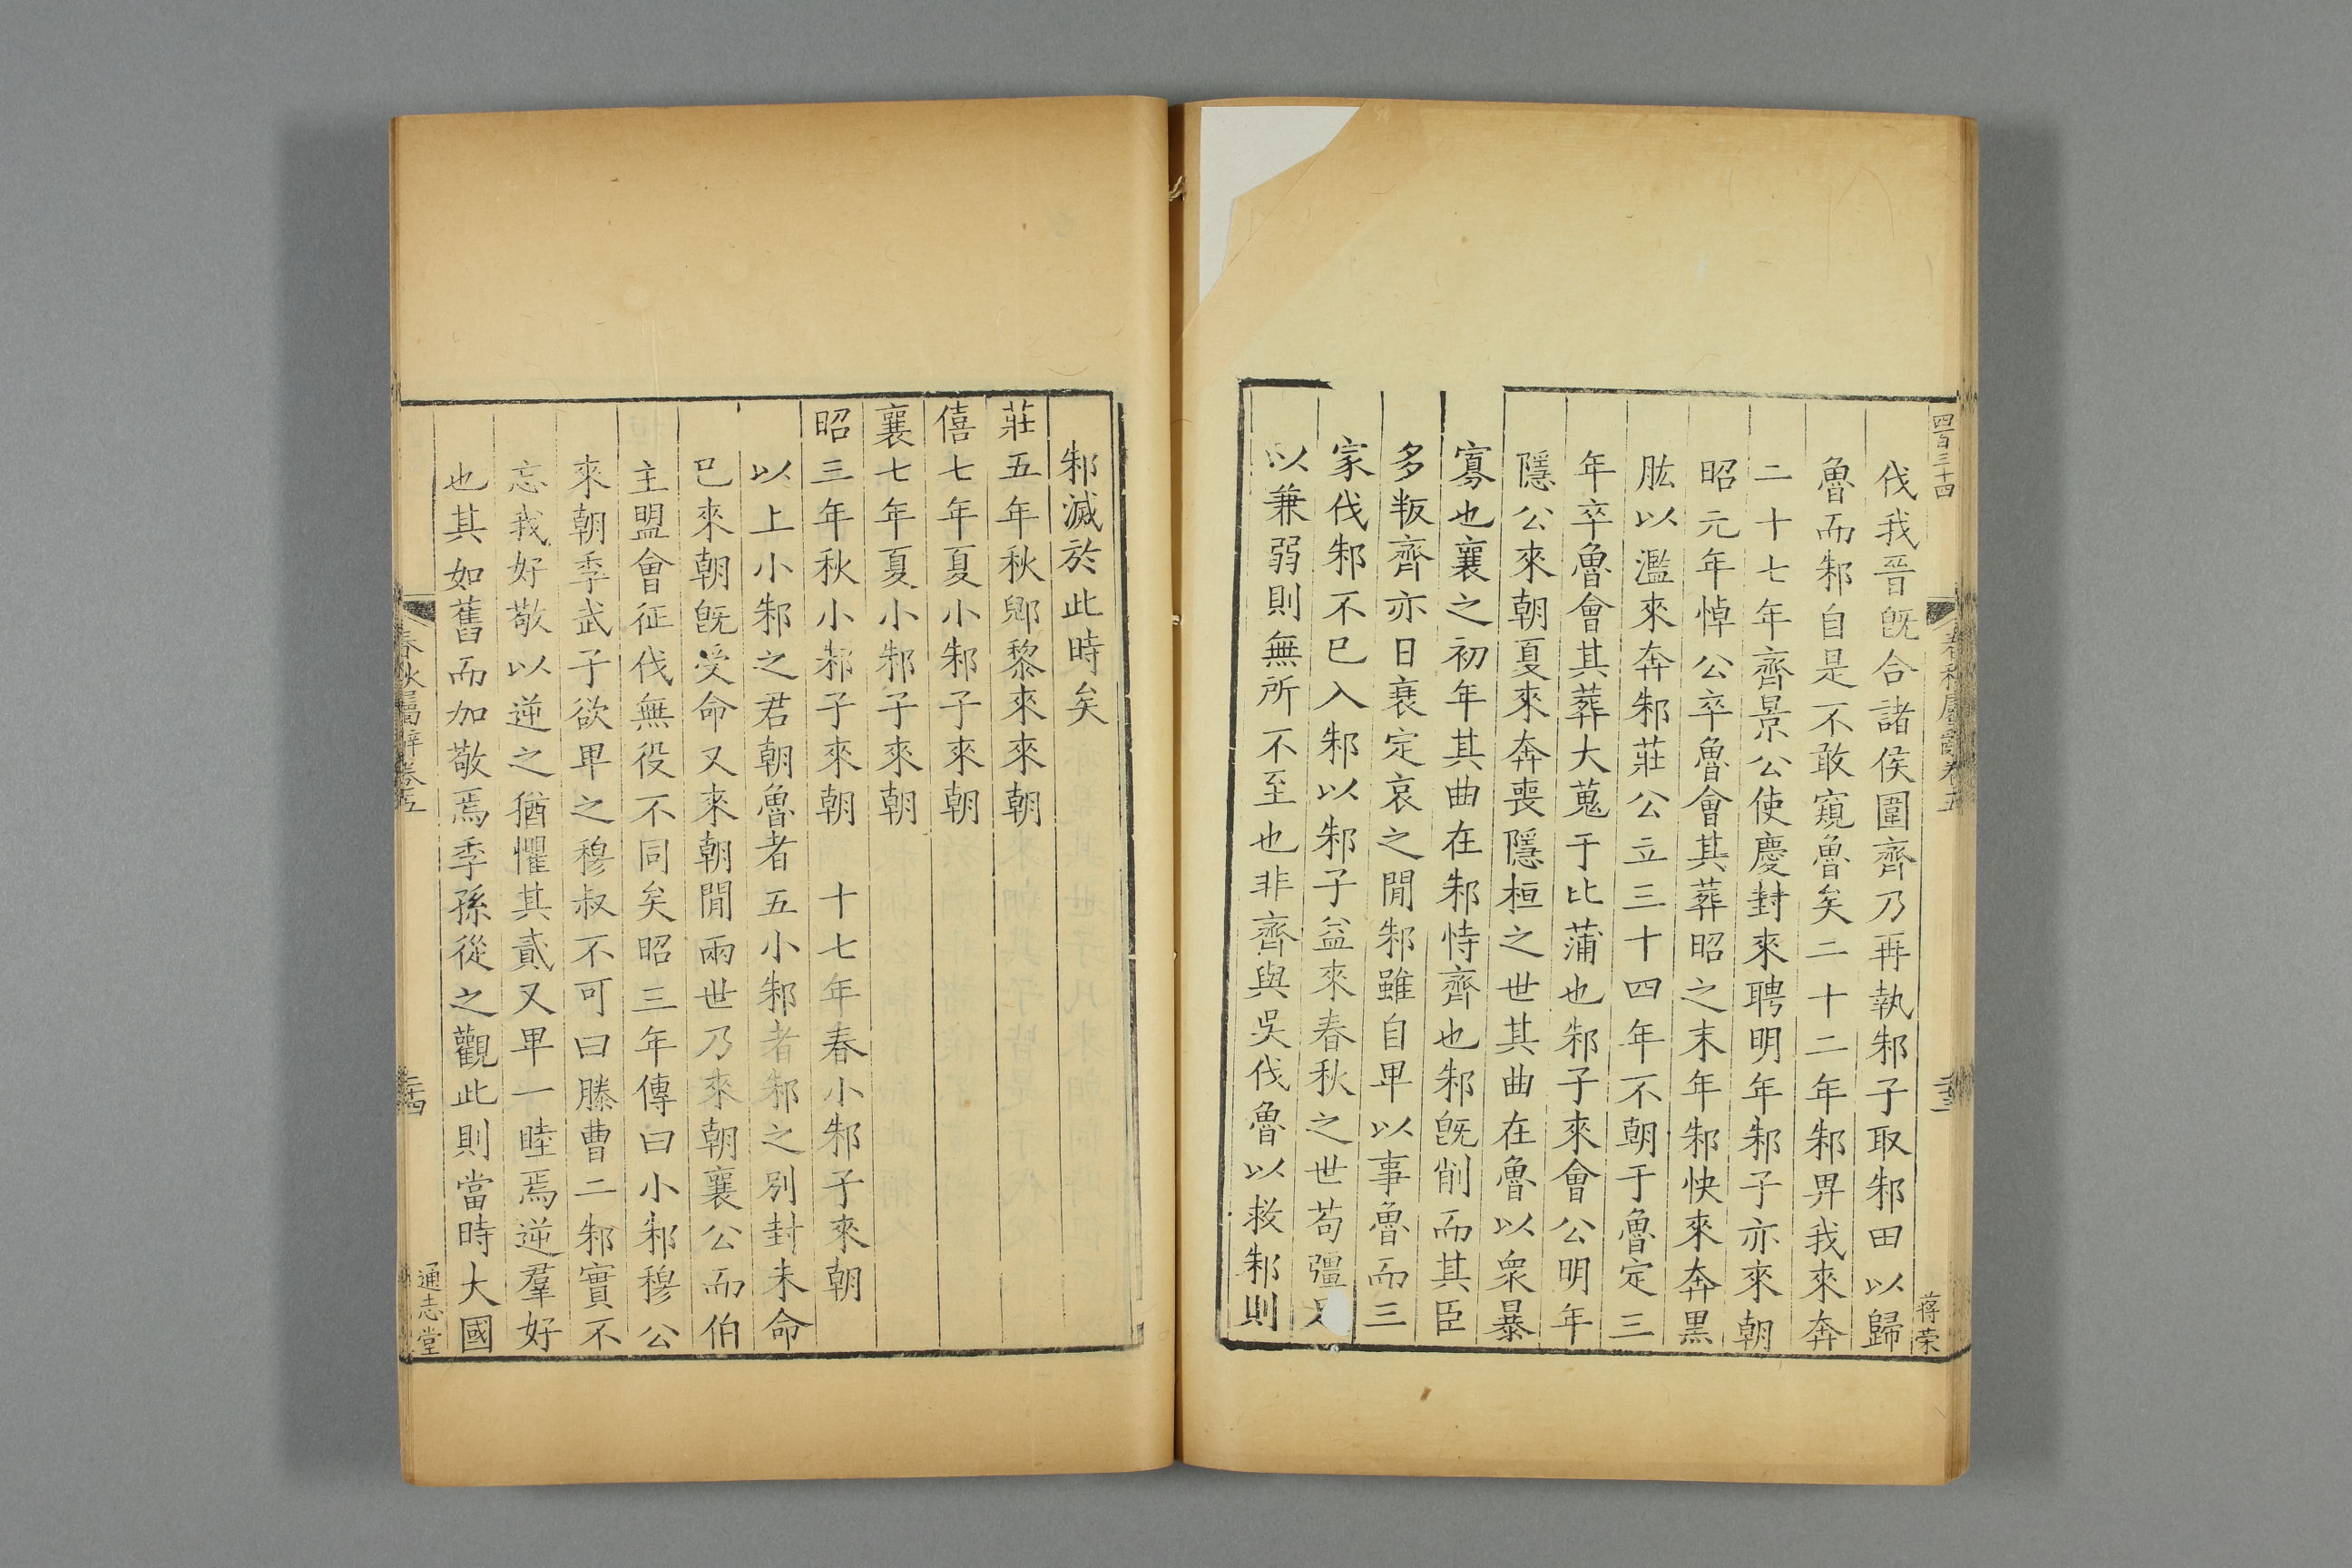 四百三十四
蒋荣
伐我晉旣合諸侯圍齊乃再執邾子取邾田以歸
魯而邾自是不敢窺魯矣二十二年邾畀我來奔
二十七年齊景公使慶封來聘明年邾子亦來朝
昭元年悼公卒魯會其葬昭之末年邾快來奔黑
肱以濫來奔邾莊公立三十四年不朝于魯定三
年卒魯會其葬大蒐于比蒲也邾子來會公明年
隱公來朝夏來奔喪隱桓之世其曲在魯以衆暴
寡也襄之初年其曲在邾恃齊也邾旣削而其臣
多叛齊亦日衰定哀之閒邾雖自卑以事魯而三
家伐邾不已入邾以邾子益來春秋之世苟彊
以兼弱則無所不至也非齊與吳伐魯以救邾則
邾滅於此時矣
莊五年秋郳黎來來朝
僖七年夏小邾子來朝
襄七年夏小邾子來朝
昭三年秋小邾子來朝　十七年春小邾子來朝
以上小邾之君朝魯者五小邾者邾之別封未命
已來朝旣受命又來朝閒兩世乃來朝襄公而伯
主盟會征伐無役不同矣昭三年傳曰小邾穆公
來朝季武子欲卑之穆叔不可曰滕曹二邾實不
忘我好敬以逆之猶懼其貳又卑一睦焉逆羣好
也其如舊而加敬焉季孫從之觀此則當時大國
春秋屬辭卷五
通志堂